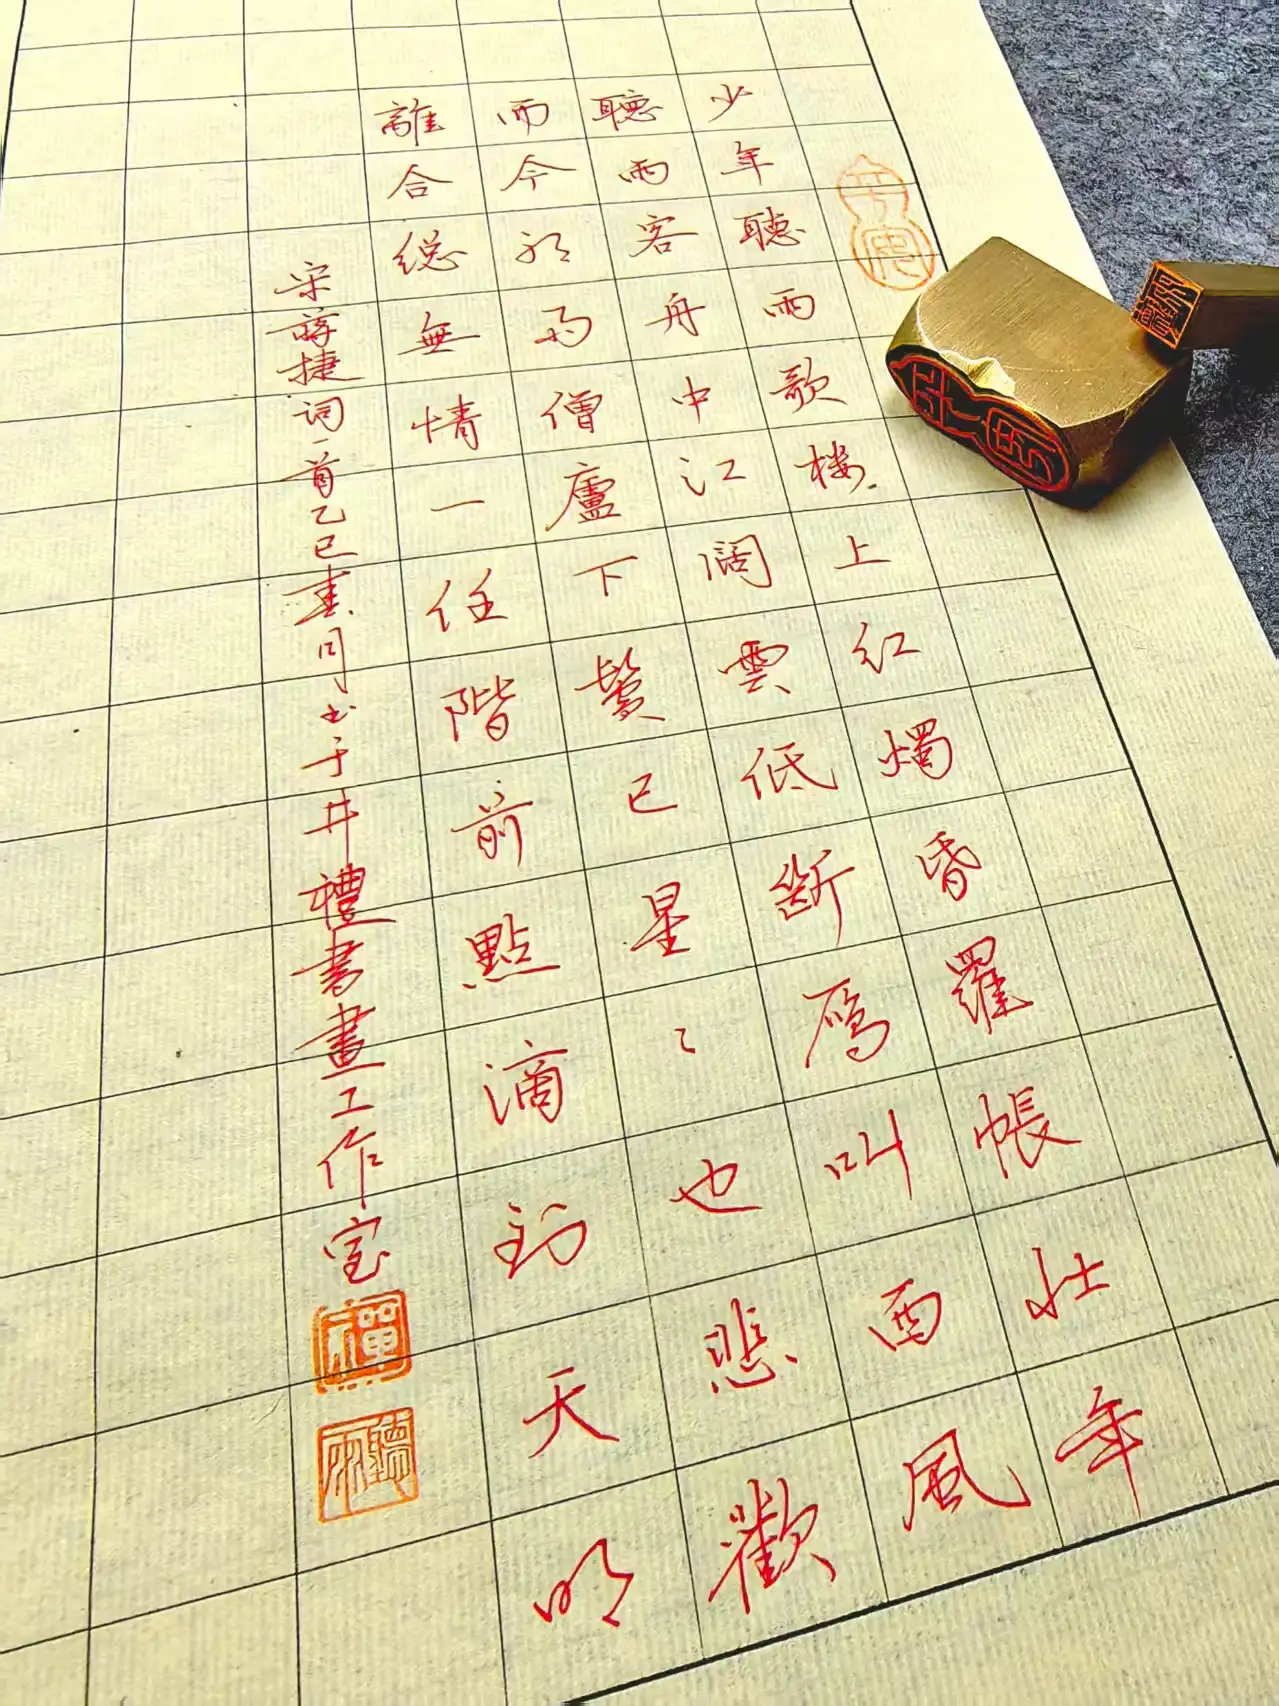 少年聽雨歌楼上紅燭昏羅帳壯年
聽雨客舟中江闊雲低斷鴈叫西風
而今聽雨僧廬下鬢已星〻也悲歡
離合總無情一任階前點滴到天明
宋蔣捷詞一首乙巳春月书于井禮書畫工作室
聽雨